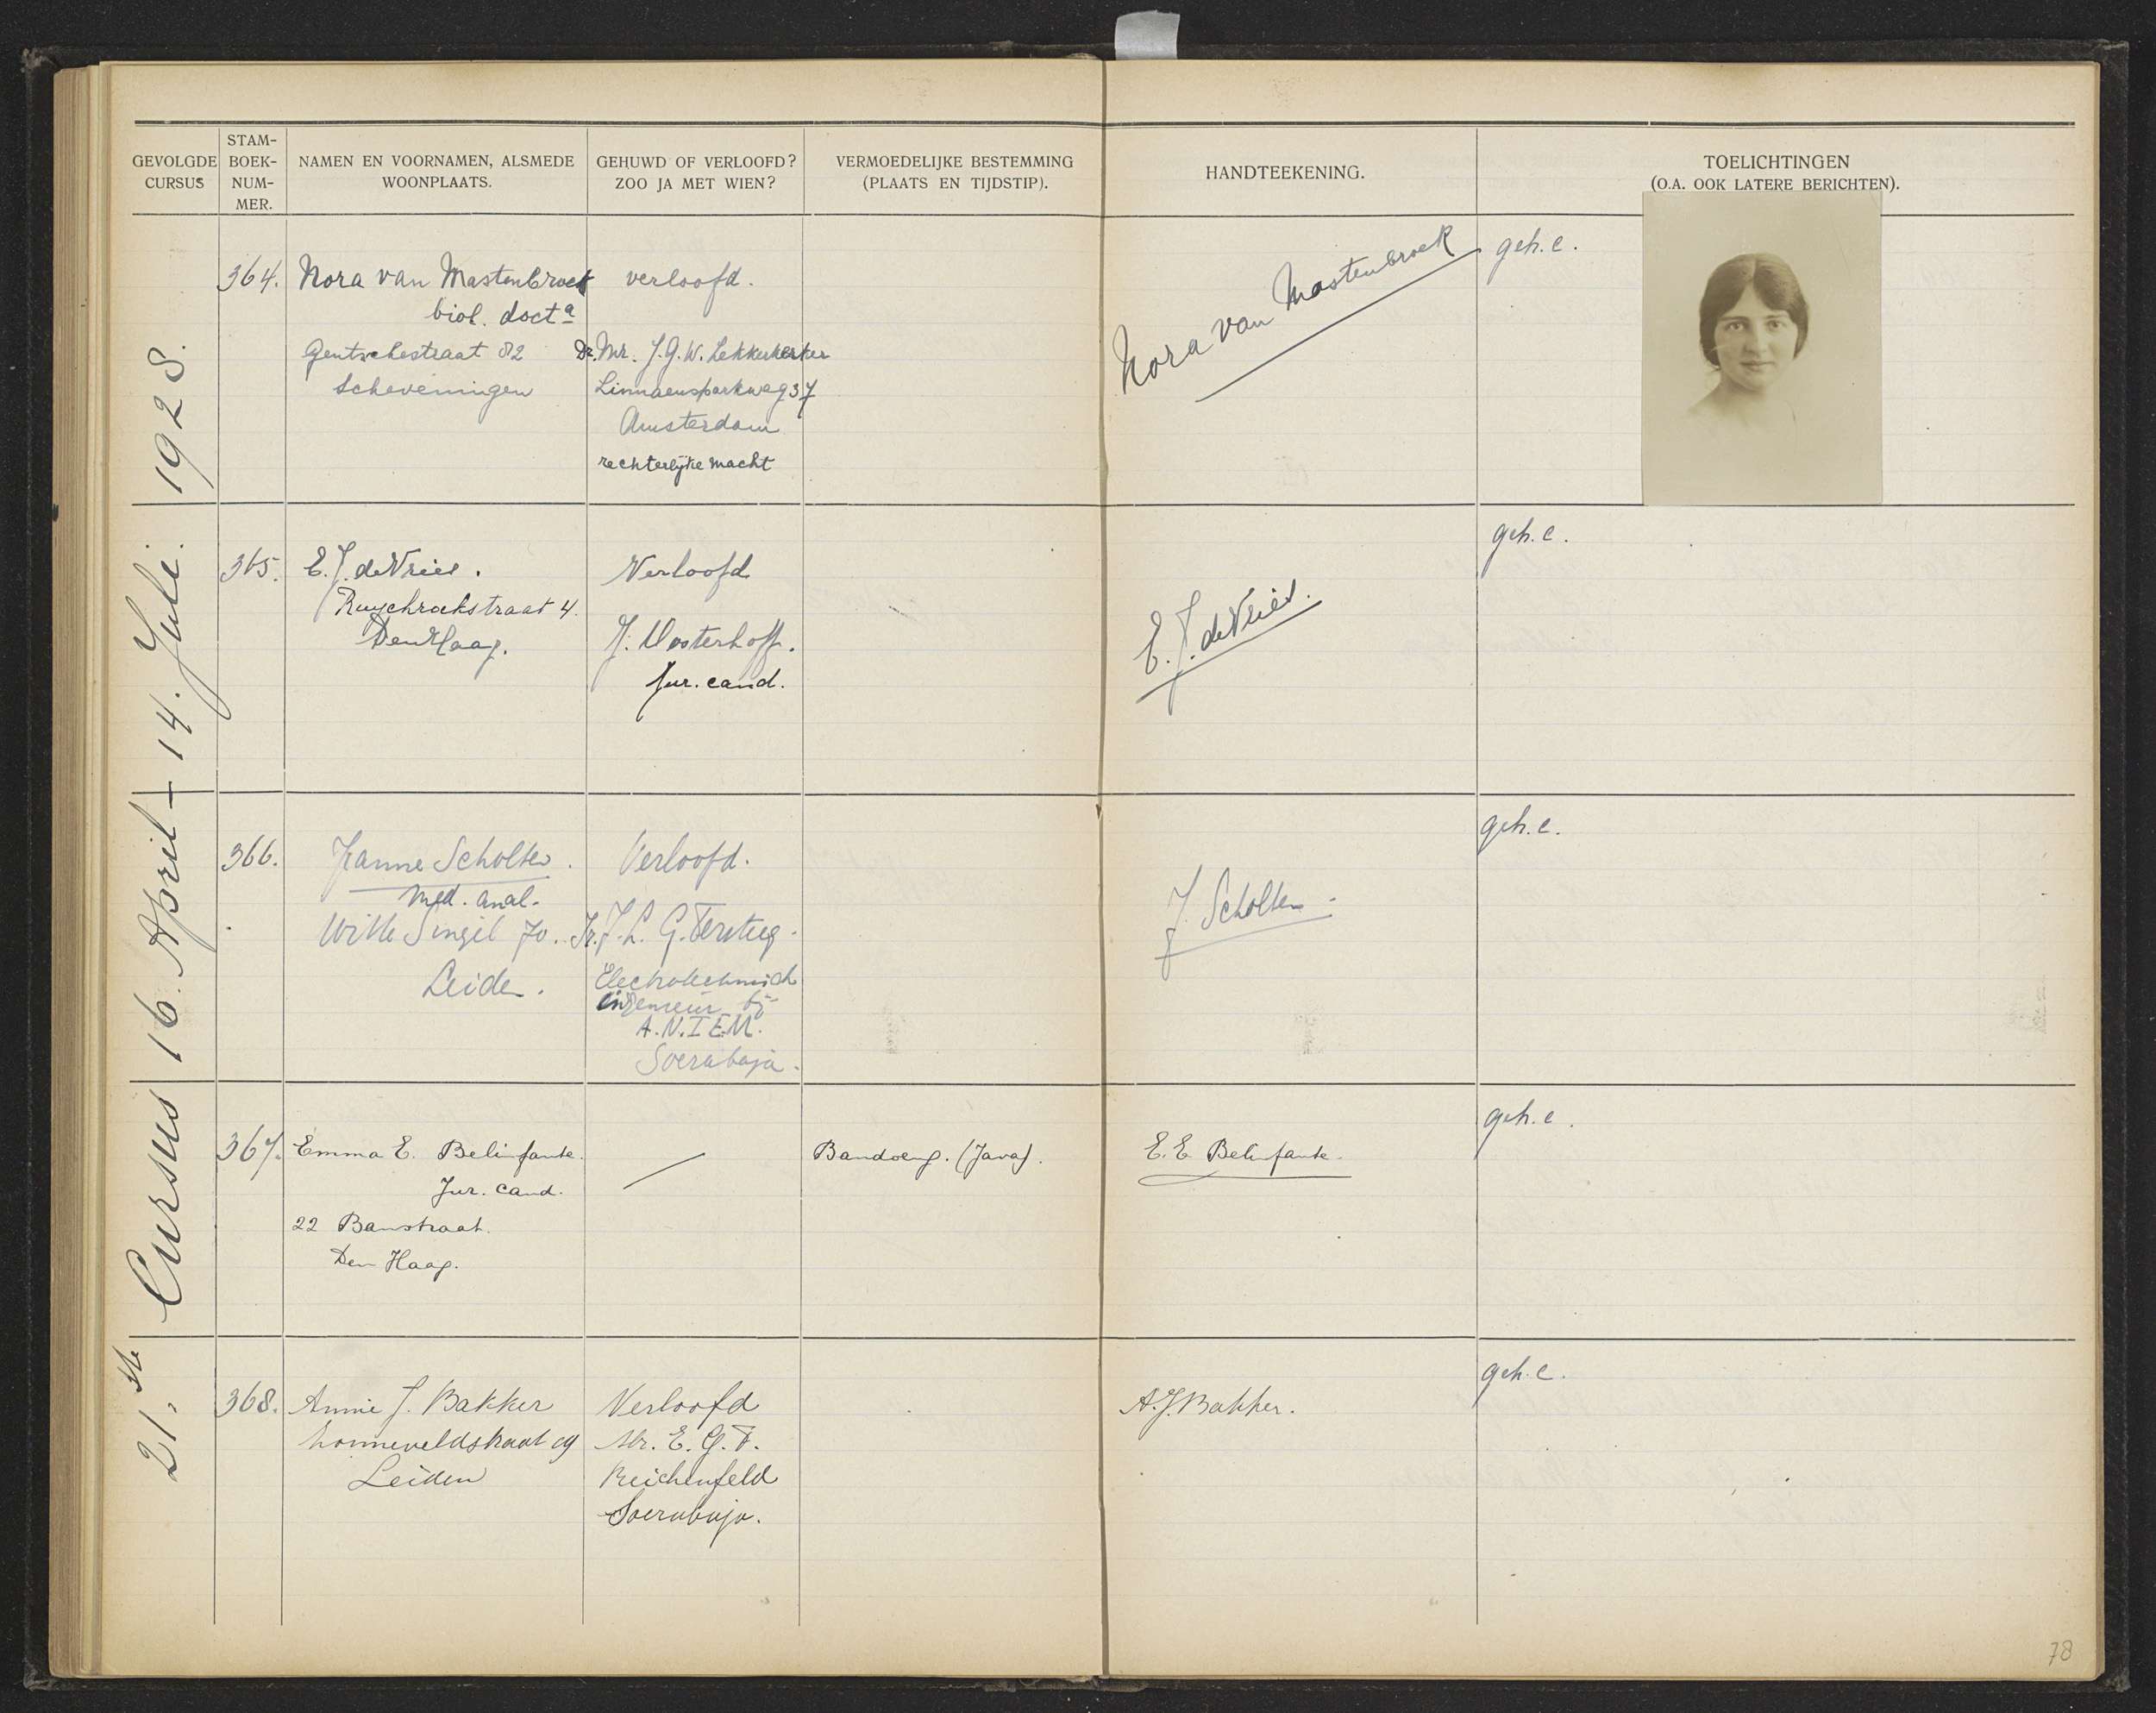 GEVOLGDE CURSUS
STAM-BOEK-NUM-MER.
NAMEN EN VOORNAMEN, ALSMEDE WOONPLAATS.
GEHUWD OF VERLOOFD? ZOO JA MET WIEN?
VERMOEDELIJKE BESTEMMING (PLAATS EN TIJDSTIP).
HANDTEEKENING.
TOELICHTINGEN (O.A. OOK LATERE BERICHTEN).
21.ste Cursus 16. April – 14. Juli. 1928.
364.
Nora van Mastenbroek
biol. docta
Gentschestraat 82
Scheveningen
verloofd.
Dr. Mr. J.G.W. Lekkerkerker
Linnaeusparkweg 37
Amsterdam
rechterlijke macht
Nora van Mastenbroek
geh. c.
365.
E. J. de Vries.
Ruychrockstraat 4.
Den Haag.
Verloofd
J. Oosterhoff.
Jur. cand.
E. J. de Vries.
geh. c.
366.
Janne Scholten.
med. anal.
Witte Singel 70.
Leiden.
Verloofd.
Ir. J. L. G. Tersteeg.
Electrotechnisch
ingenieur bij
A.N.I.E.M.
Soerabaja.
J. Scholten
geh. c.
367.
Emma E. Belinfante.
Jur. cand.
22 Banstraat.
Den Haag.
Bandoeng. (Java).
E. E. Belinfante.
geh. c.
368.
Annie J. Bakker
Lonneveldstraat
Leiden
Verloofd
Mr. E. G. F.
Reichenfeld
Soerabaja.
A. J. Bakker.
geh. c.
78